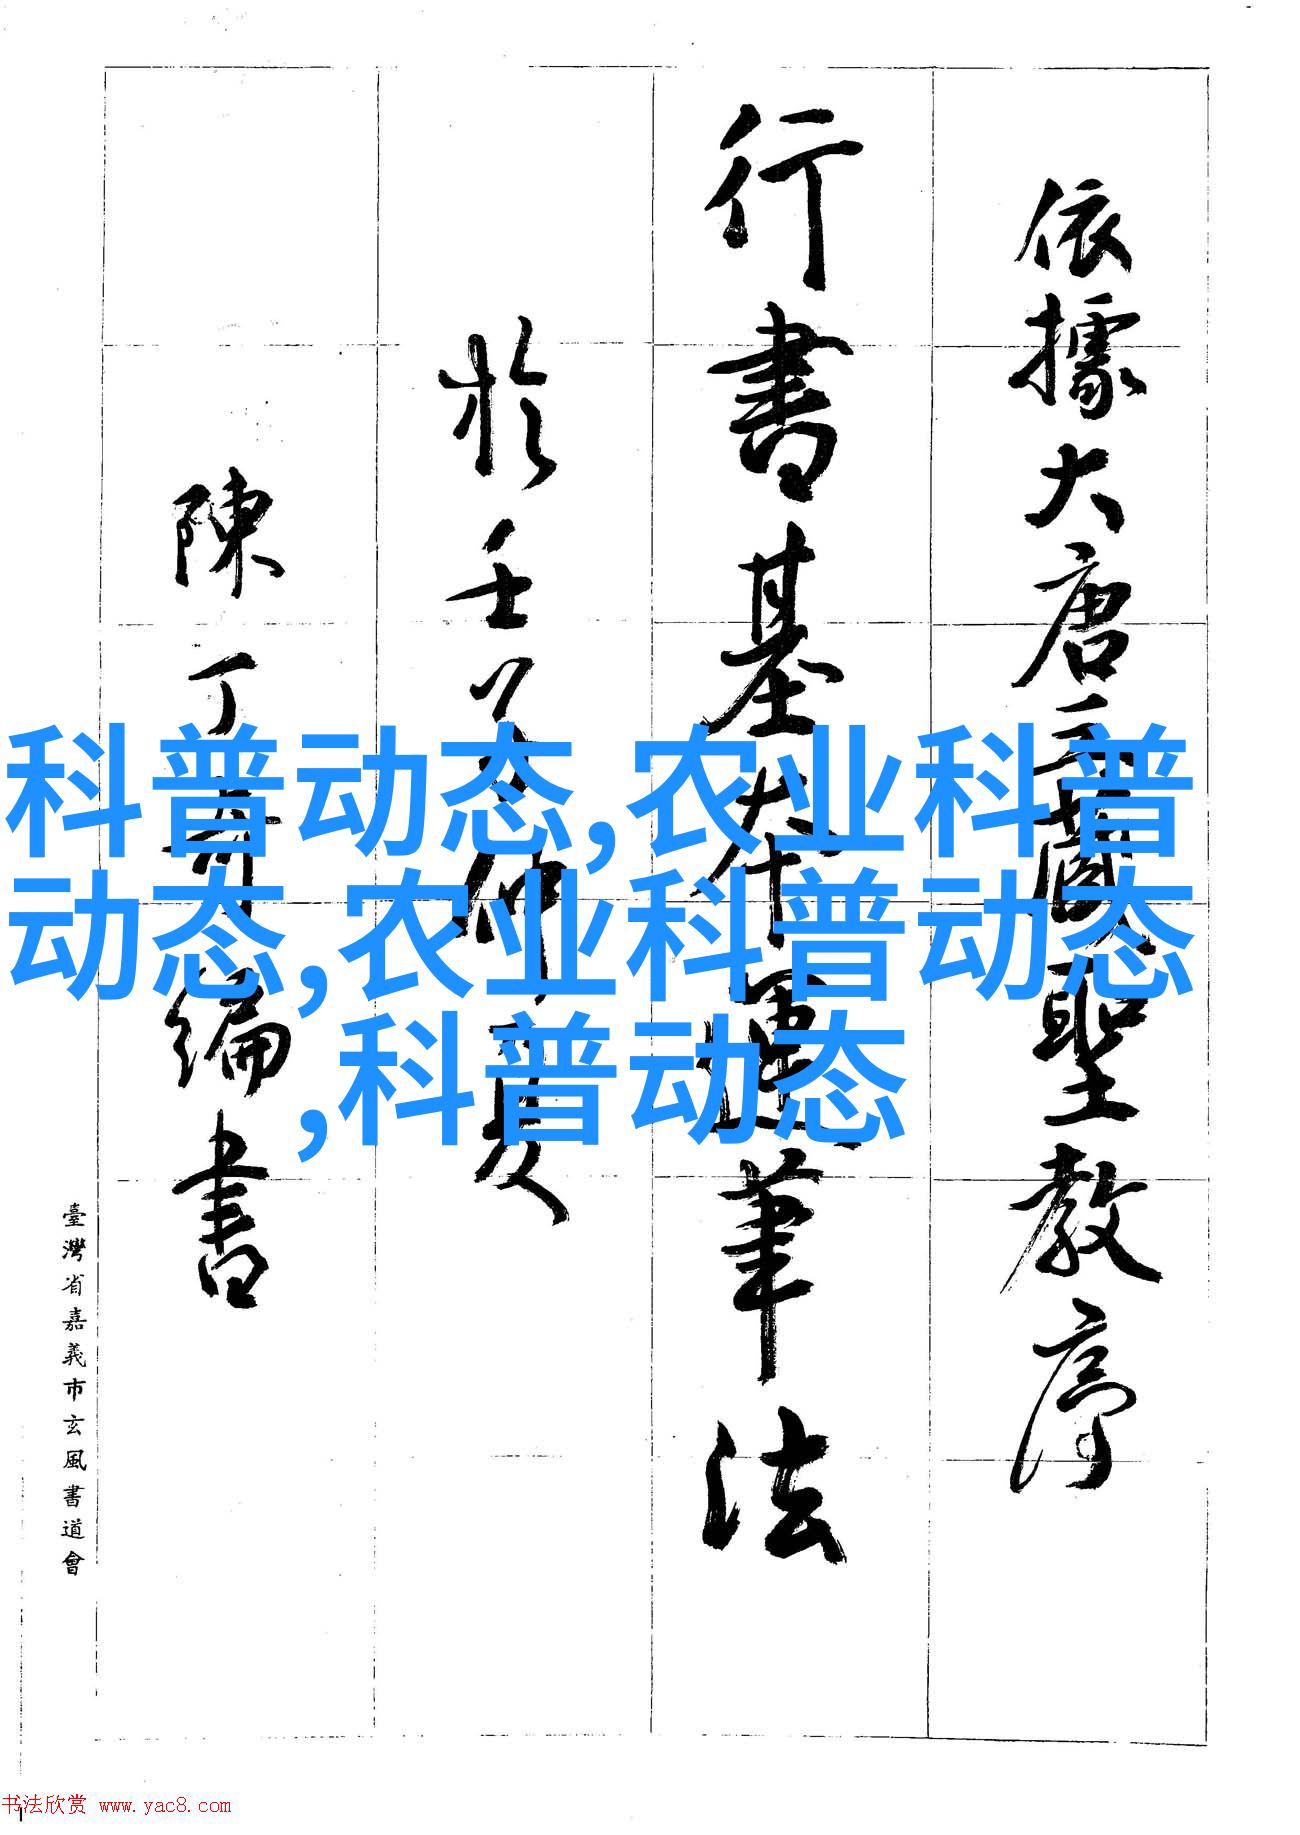 依據大唐三藏聖教序
行書基本運筆法
於壬午仲夏
陳丁奇編書
臺灣省嘉義市玄風書道會
科普动态,农业科普
动态,农业科普动态
,科普动态
书法欣赏 www.yac8.com